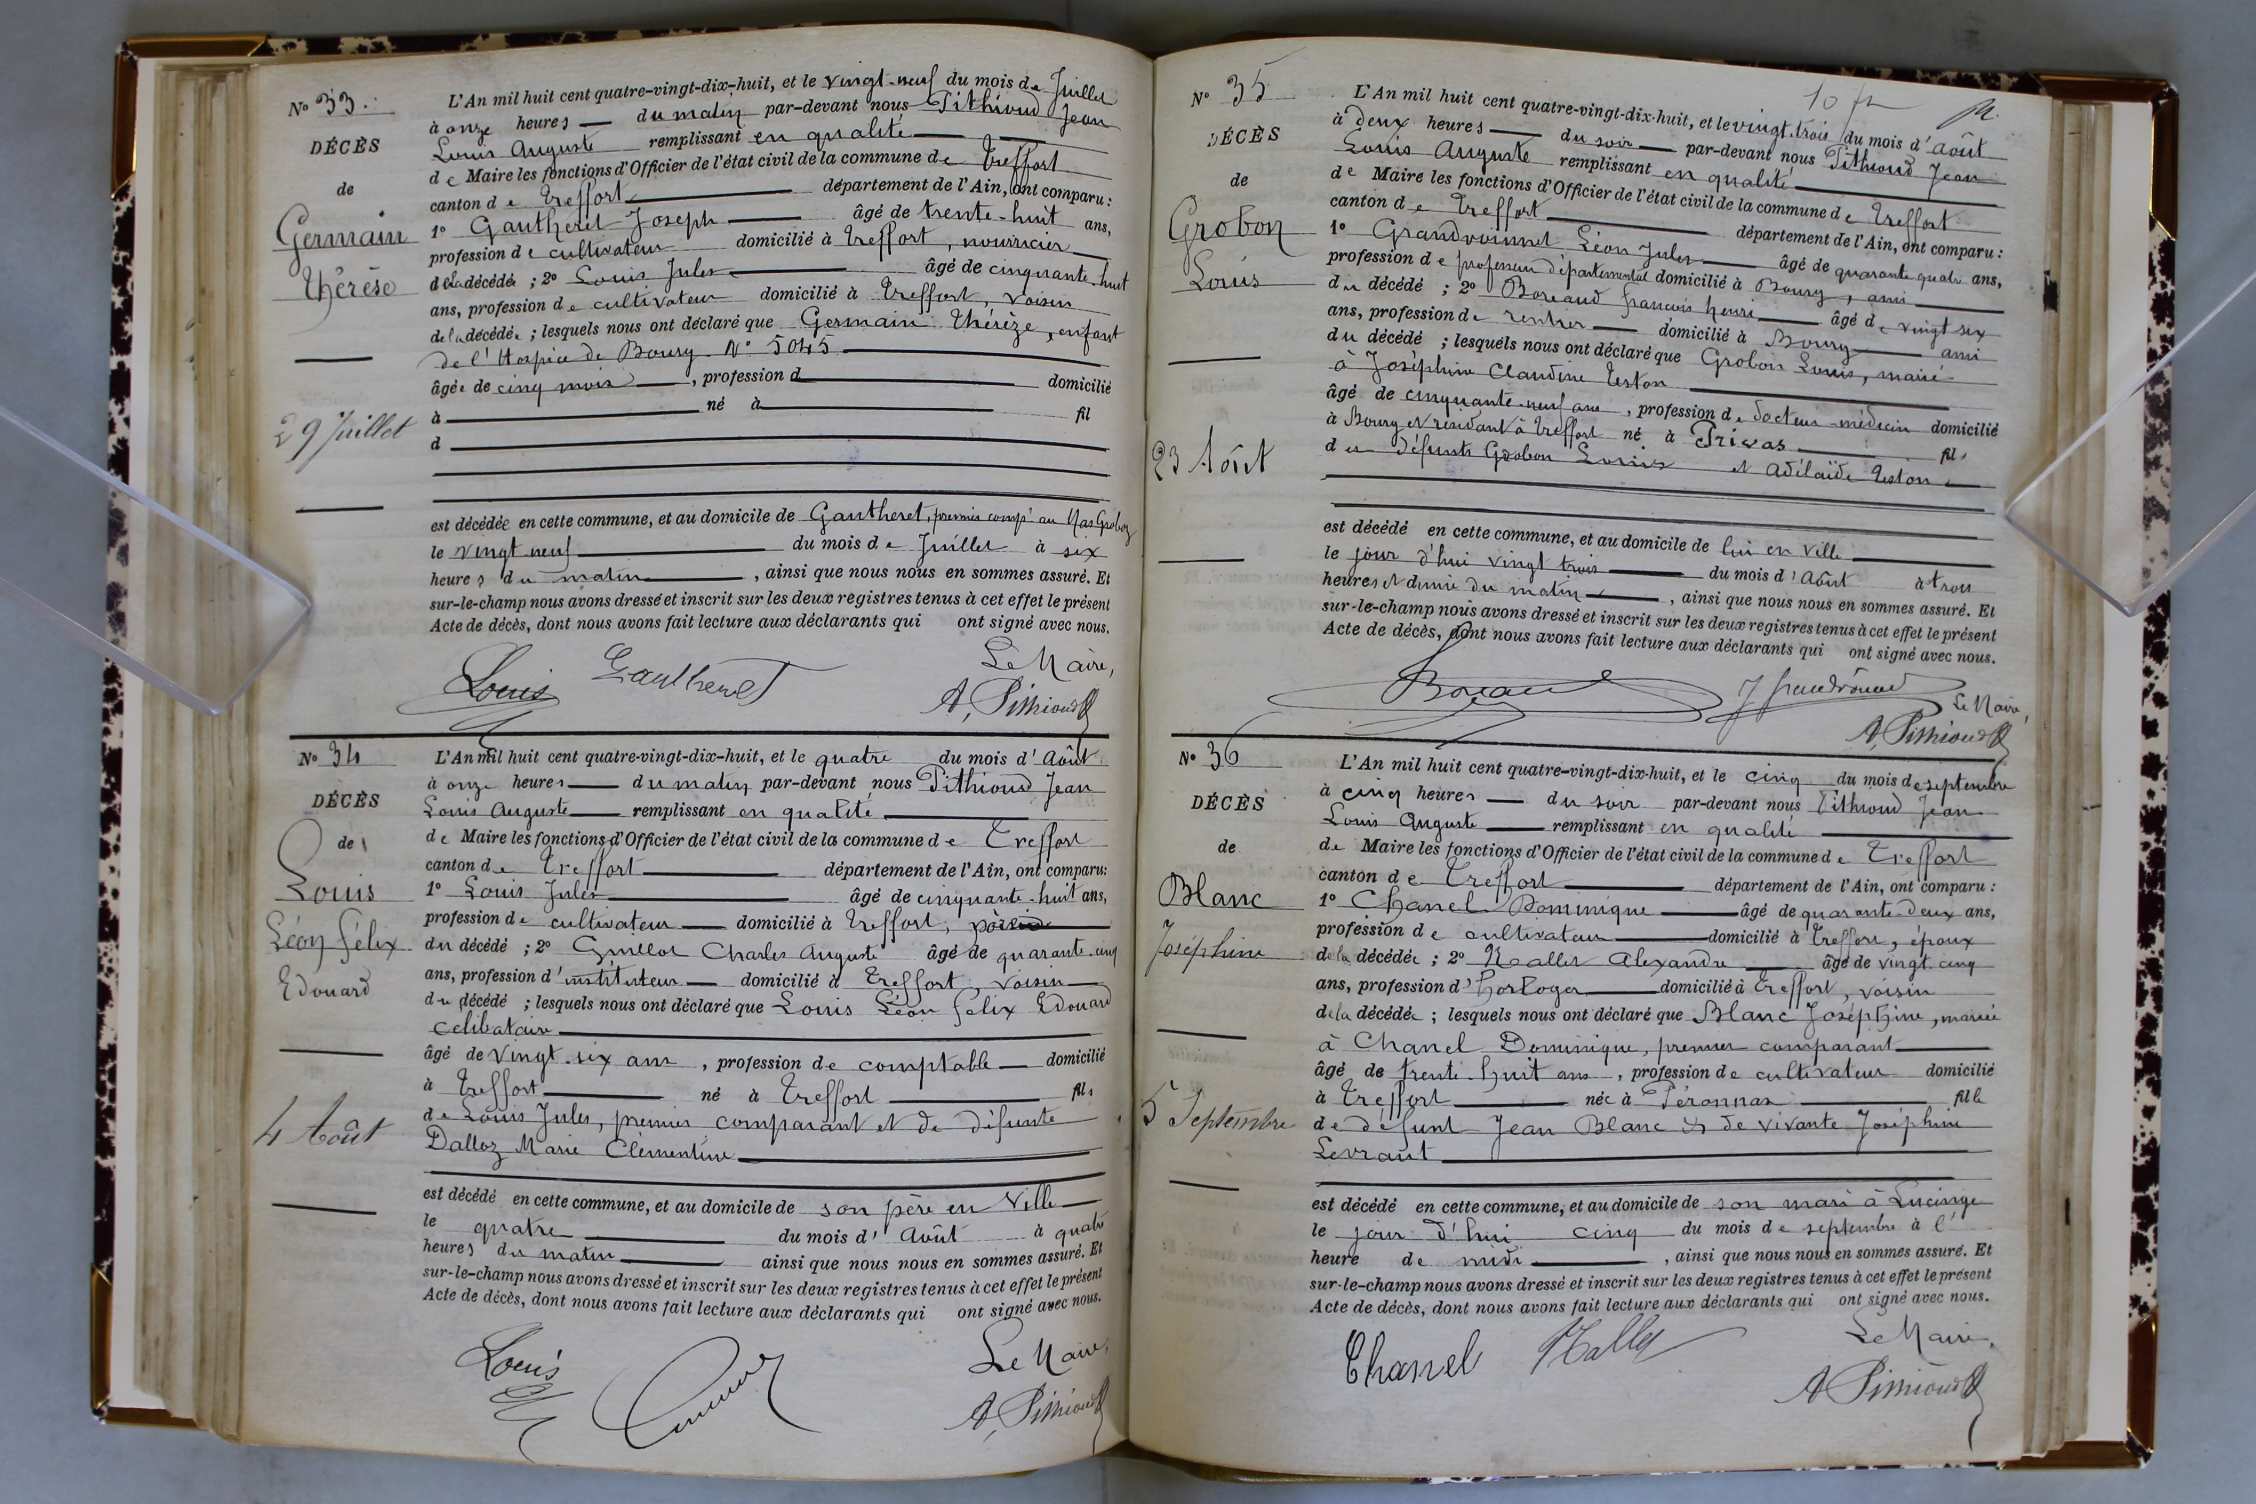 N° 33.
DÉCÈS
de
Germain
Thérèse
29 Juillet
L'An mil huit cent quatre-vingt-dix-huit, et le vingt-neuf du mois de Juillet
à onze heures du matin par-devant nous Pithioud Jean
Louis Auguste remplissant en qualité
de Maire les fonctions d'Officier de l'état civil de la commune de Treffort
canton de Treffort département de l'Ain, ont comparu :
1° Gautheret Joseph âgé de trente-huit ans,
profession de cultivateur domicilié à Treffort, nourricier
de la décédée ; 2° Louis Jules âgé de cinquante-huit
ans, profession de cultivateur domicilié à Treffort, voisin
de la décédée ; lesquels nous ont déclaré que Germain Thérèze, enfant
de l'Hospice de Bourg N° 5045
âgée de cinq mois, profession d domicilié
à né à fil
d
est décédée en cette commune, et au domicile de Gautheret, premier compt au Mas Groboz
le vingt neuf du mois de Juillet à six
heures du matin, ainsi que nous nous en sommes assuré. Et
sur-le-champ nous avons dressé et inscrit sur les deux registres tenus à cet effet le présent
Acte de décès, dont nous avons fait lecture aux déclarants qui ont signé avec nous.
Louis Gautheret Le Maire,
A. Pithioud
N° 34
DÉCÈS
de
Louis
Léon Félix
Edouard
4 Août
L'An mil huit cent quatre-vingt-dix-huit, et le quatre du mois d'Août
à onze heures du matin par-devant nous Pithioud Jean
Louis Auguste remplissant en qualité
de Maire les fonctions d'Officier de l'état civil de la commune de Treffort
canton de Treffort département de l'Ain, ont comparu:
1° Louis Jules âgé de cinquante-huit ans,
profession de cultivateur domicilié à Treffort, père
du décédé ; 2° Guillot Charles Auguste âgé de quarante-cinq
ans, profession d'instituteur domicilié à Treffort, voisin
du décédé ; lesquels nous ont déclaré que Louis Léon Félix Edouard
célibataire
âgé de vingt-six ans, profession de comptable domicilié
à Treffort né à Treffort fils
de Louis Jules, premier comparant et de défunte
Dalloz Marie Clémentine
est décédé en cette commune, et au domicile de son père en Ville
le quatre du mois d'Août à quatre
heures du matin ainsi que nous nous en sommes assuré. Et
sur-le-champ nous avons dressé et inscrit sur les deux registres tenus à cet effet le présent
Acte de décès, dont nous avons fait lecture aux déclarants qui ont signé avec nous.
Louis Le Maire,
A. Pithioud
N° 35
DÉCÈS
de
Grobon
Louis
23 Août
L'An mil huit cent quatre-vingt-dix-huit, et le vingt-trois du mois d'Août
à deux heures du soir par-devant nous Pithioud Jean
Louis Auguste remplissant en qualité
de Maire les fonctions d'Officier de l'état civil de la commune de Treffort
canton de Treffort département de l'Ain, ont comparu :
1° Grandvoinnet Léon Jules âgé de quarante quatre ans,
profession de professeur départemental domicilié à Bourg, ami
du décédé ; 2° Boreaud françois henri âgé de vingt six
ans, profession de rentier domicilié à Bourg ami
du décédé ; lesquels nous ont déclaré que Grobon Louis, marié
à Joséphine Claudine Teston
âgé de cinquante-neuf ans, profession de docteur-médecin domicilié
à Bourg et résidant à Treffort né à Privas fils
de défunts Grobon Louis et Adélaïde Teston
est décédé en cette commune, et au domicile de lui en ville
le jour d'hui vingt trois du mois d'Août à trois
heures et demie du matin, ainsi que nous nous en sommes assuré. Et
sur-le-champ nous avons dressé et inscrit sur les deux registres tenus à cet effet le présent
Acte de décès, dont nous avons fait lecture aux déclarants qui ont signé avec nous.
Le Maire,
A. Pithioud
N° 36
DÉCÈS
de
Blanc
Joséphine
5 Septembre
L'An mil huit cent quatre-vingt-dix-huit, et le cinq du mois de septembre
à cinq heures du soir par-devant nous Pithioud Jean
Louis Auguste remplissant en qualité
de Maire les fonctions d'Officier de l'état civil de la commune de Treffort
canton de Treffort département de l'Ain, ont comparu :
1° Chanel Dominique âgé de quarante-deux ans,
profession de cultivateur domicilié à Treffort, époux
de la décédée ; 2° Mallet Alexandre âgé de vingt-cinq
ans, profession d'horloger domicilié à Treffort, voisin
de la décédée ; lesquels nous ont déclaré que Blanc Joséphine, mariée
à Chanel Dominique, premier comparant
âgé de trente-huit ans, profession de cultivateur domicilié
à Treffort née à Péronnas fille
de défunt Jean Blanc et de vivante Joséphine
Levraut
est décédé en cette commune, et au domicile de son mari à Lucinge
le jour d'hui cinq du mois de septembre à l'
heure de midi, ainsi que nous nous en sommes assuré. Et
sur-le-champ nous avons dressé et inscrit sur les deux registres tenus à cet effet le présent
Acte de décès, dont nous avons fait lecture aux déclarants qui ont signé avec nous.
Chanel Mallet Le Maire,
A Pithioud